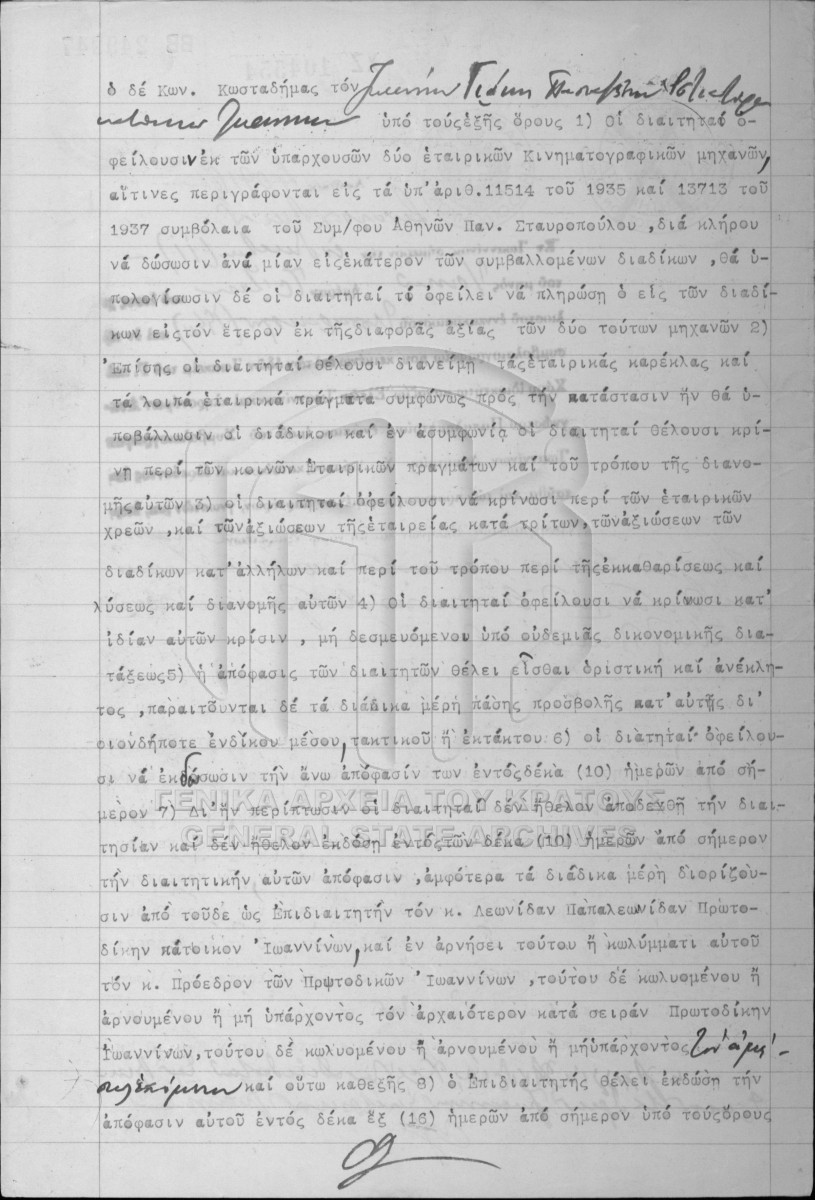 ὁ δέ Κων. Κωσταδήμας τόν Ἰωάννην
Ἰωαννίνων ὑπό τούςἑξῆς ὅρους 1) Οἱ διαιτηταί ὀ-
φείλουσινἐκ τῶν ὑπαρχουσῶν δύο ἑταιρικῶν Κινηματογραφικῶν μηχανῶν,
αἵτινες περιγράφονται εἰς τά ὑπ'ἀριθ.11514 τοῦ 1935 καί 13713 τοῦ
1937 συμβόλαια τοῦ Συμ/φου Ἀθηνῶν Παν. Σταυροπούλου ,διά κλήρου
νά δώσωσιν ἀνά μίαν εἰςἑκάτερον τῶν συμβαλλομένων διαδίκων ,θά ὑ-
πολογίσωσιν δέ οἱ διαιτηταί τί ὀφείλει νά πληρώσῃ ὁ εἷς τῶν διαδί-
κων εἰςτόν ἕτερον ἐκ τῆςδιαφορᾶς ἀξίας τῶν δύο τούτων μηχανῶν 2)
Ἐπίσης οἱ διαιτηταί θέλουσι διανείμῃ τάςἑταιρικάς καρέκλας καί
τά λοιπά ἑταιρικά πράγματα συμφώνως πρός τήν κατάστασιν ἥν θά ὑ-
ποβάλλωσιν οἱ διάδικοι καί ἐν ἀσυμφωνίᾳ οἱ διαιτηταί θέλουσι κρί-
νῃ περί τῶν κοινῶν ἑταιρικῶν πραγμάτων καί τοῦ τρόπου τῆς διανο-
μῆςαὐτῶν 3) οἱ διαιτηταί ὀφείλουσι νά κρίνωσι περί τῶν ἑταιρικῶν
χρεῶν ,καί τῶνἀξιώσεων τῆςἑταιρείας κατά τρίτων,τῶνἀξιώσεων τῶν
διαδίκων κατ'ἀλλήλων καί περί τοῦ τρόπου περί τῆςἐκκαθαρίσεως καί
λύσεως καί διανομῆς αὐτῶν 4) Οἱ διαιτηταί ὀφείλουσι νά κρίνωσι κατ'
ἰδίαν αὐτῶν κρίσιν , μή δεσμευόμενοι ὑπό οὐδεμιᾶς δικονομικῆς δια-
τάξεως5) ἡ ἀπόφασις τῶν διαιτητῶν θέλει εἶσθαι ὁριστική καί ἀνέκλη-
τος ,παραιτοῦνται δέ τά διάδικα μέρη πάσης προσβολῆς κατ'αὐτῆς δι'
οιονδήποτε ἐνδίκου μέσου,τακτικοῦ ἤ ἐκτάκτου 6) οἱ διατηταί ὀφείλου-
σι νά ἐκδώσωσιν τήν ἄνω ἀπόφασίν των ἐντόςδέκα (10) ἡμερῶν ἀπό σή-
μερον 7) Δι'ἥν περίπτωσιν οἱ διαιτηταί δέν ἤθελον ἀποδεχθῆ τήν διαι-
ΓΕΝΙΚΑ ΑΡΧΕΙΑ ΤΟΥ ΚΡΑΤΟΥΣ
GENERAL STATE ARCHIVES
τησίαν καί δέν ἤθελον ἐκδόσῃ ἐντόςτῶν δέκα (10) ἡμερῶν ἀπό σήμερον
τήν διαιτητικήν αὐτῶν ἀπόφασιν ,ἀμφότερα τά διάδικα μέρη διορίζου-
σιν ἀπό τοῦδε ὡς Ἐπιδιαιτητήν τόν κ. Λεωνίδαν Παπαλεωνίδαν Πρωτο-
δίκην κάτοικον Ἰωαννίνων,καί ἐν ἀρνήσει τούτου ἤ κωλύμματι αὐτοῦ
τόν κ. Πρόεδρον τῶν Πρωτοδικῶν Ἰωαννίνων ,τούτου δέ κωλυομένου ἤ
ἀρνουμένου ἤ μή ὑπάρχοντος τόν ἀρχαιότερον κατά σειράν Πρωτοδίκην
Ἰωαννίνων,τούτου δέ κωλυομένου ἤ ἀρνουμένου ἤ μήὑπάρχοντος
καί οὕτω καθεξῆς 8) ὁ Ἐπιδιαιτητής θέλει ἐκδώσῃ τήν
ἀπόφασιν αὐτοῦ ἐντός δέκα ἕξ (16) ἡμερῶν ἀπό σήμερον ὑπό τούςὅρους